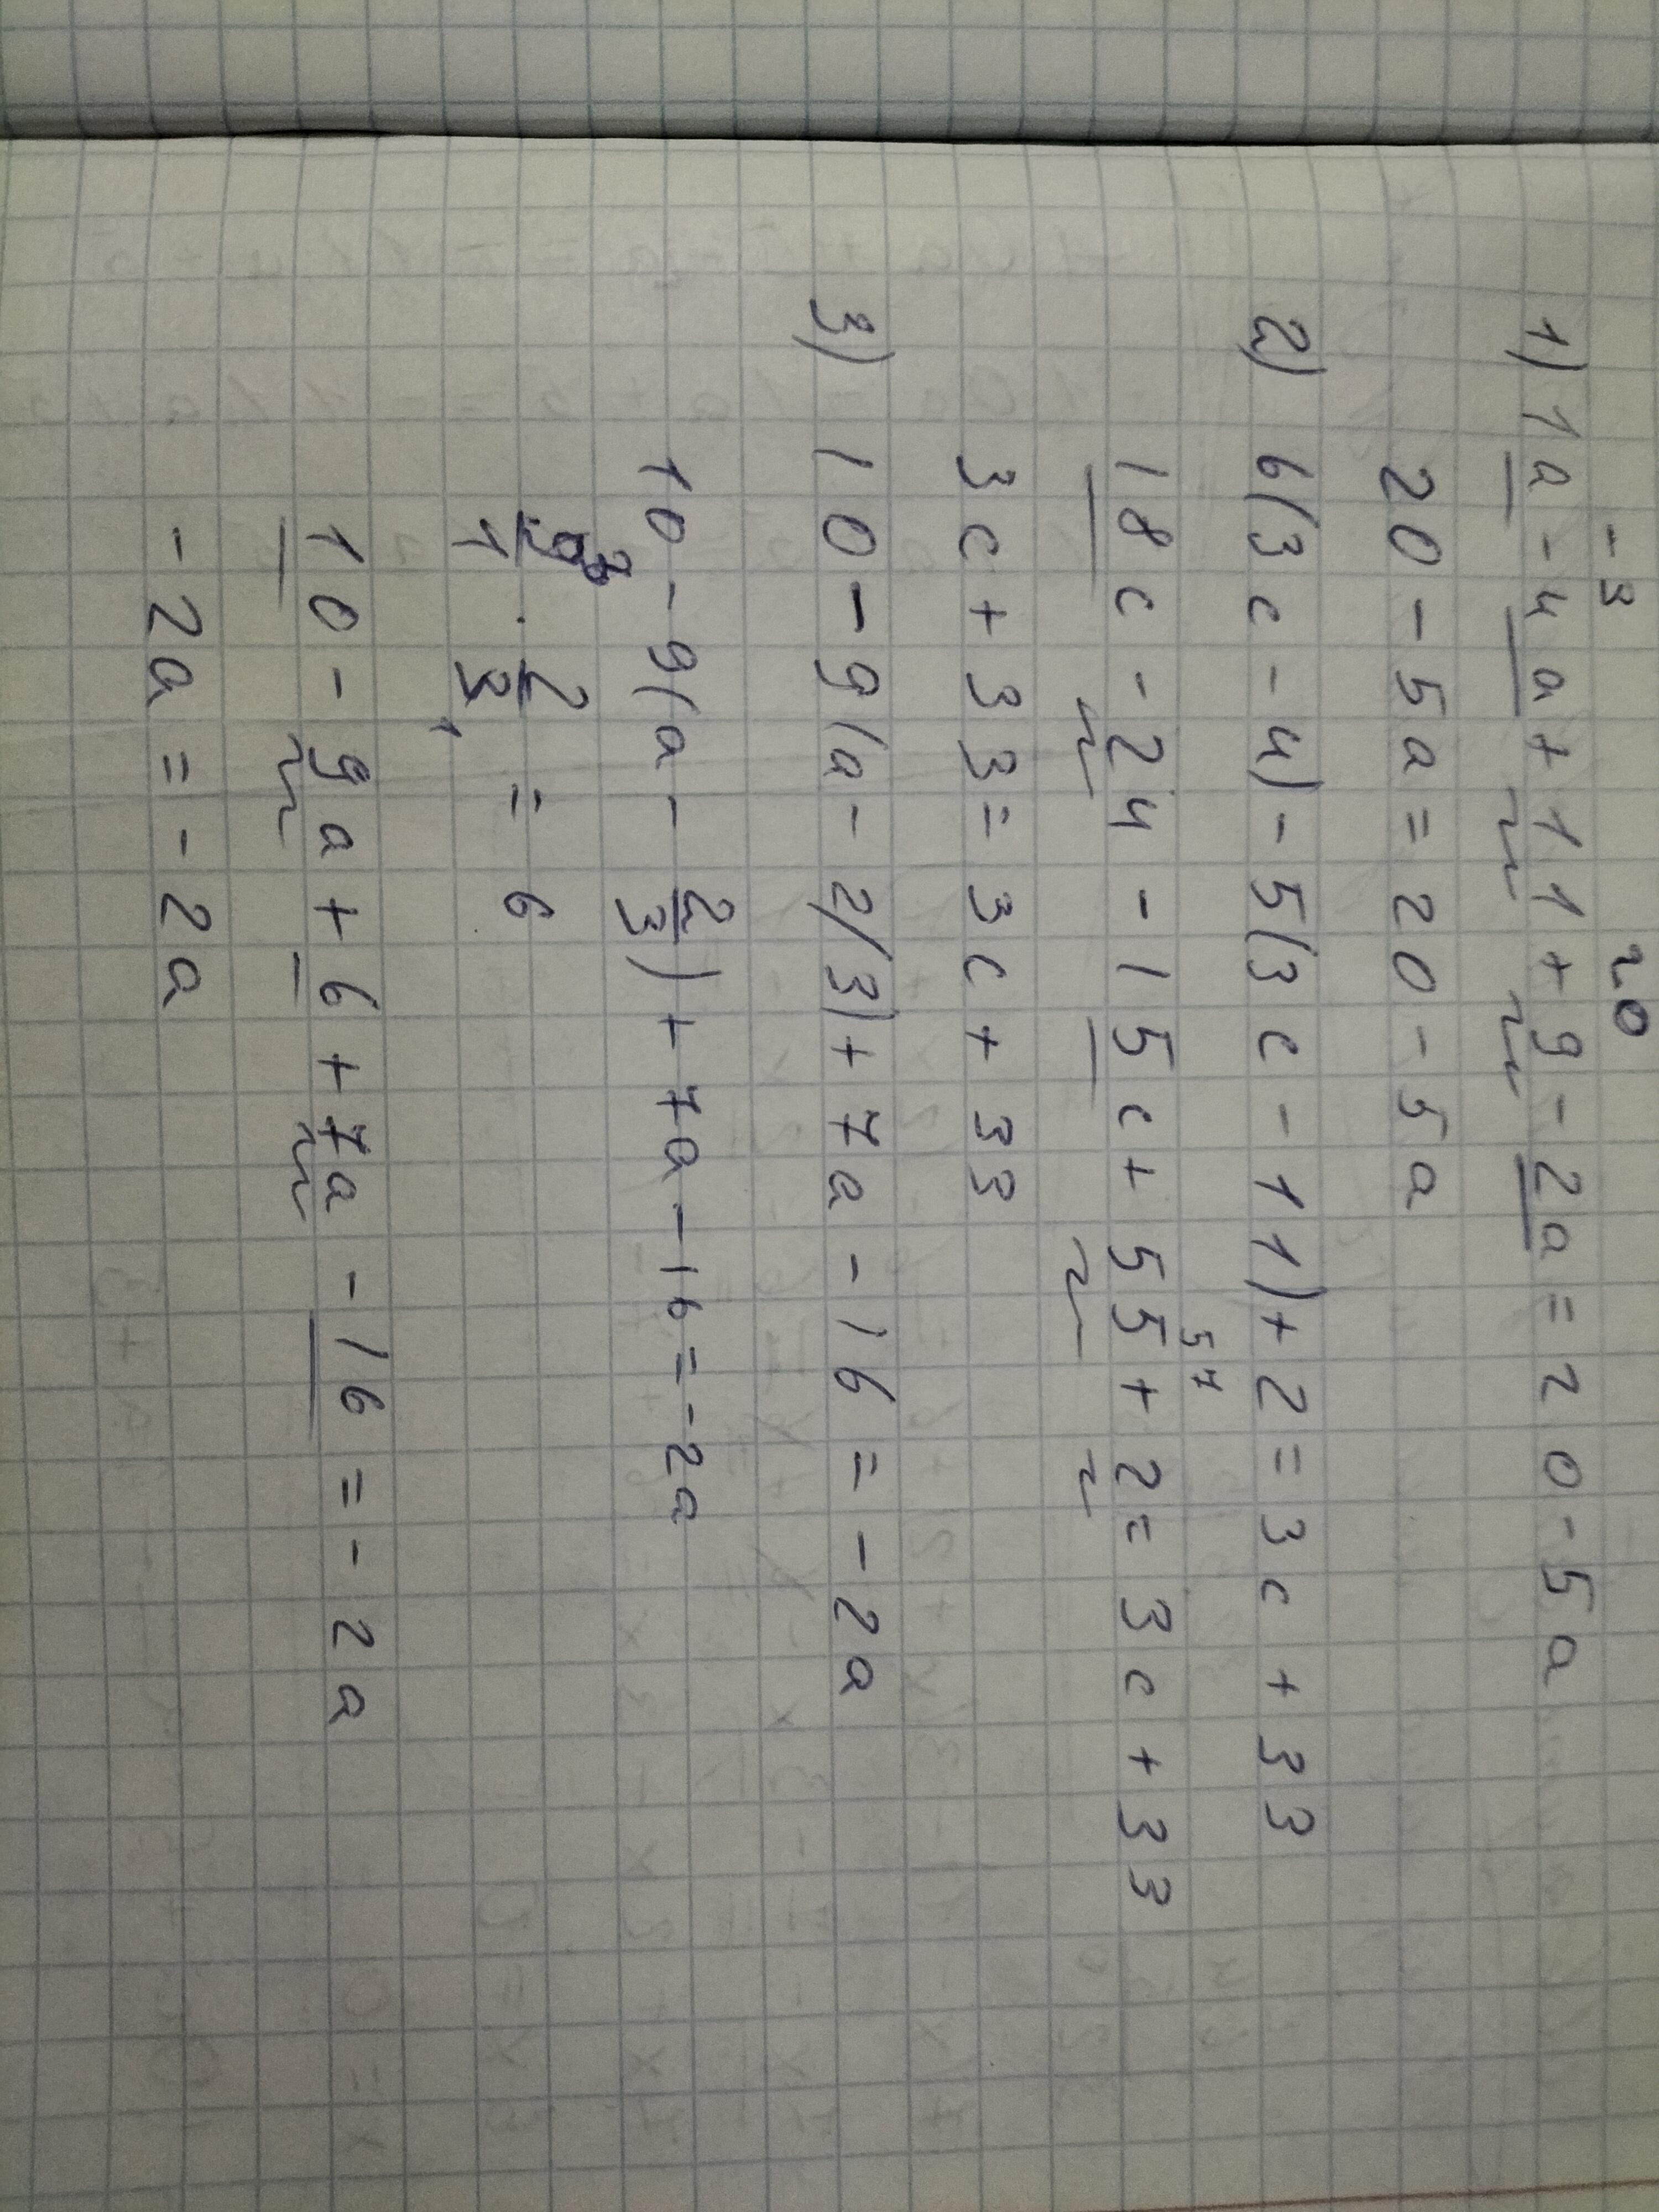 -3 20
1) 1a - 4a + 11 + 9 - 2a = 20 - 5a
20 - 5a = 20 - 5a
2) 6(3c - 4) - 5(3c - 11) + 2 = 3c + 33
57
18c - 24 - 15c + 55 + 2 = 3c + 33
3c + 33 = 3c + 33
3) 10 - 9(a - 2/3) + 7a - 16 = -2a
10 - 9(a - 2/3) + 7a - 16 = -2a
9³/1 · 2/3₁ = 6
10 - 9a + 6 + 7a - 16 = -2a
-2a = -2a